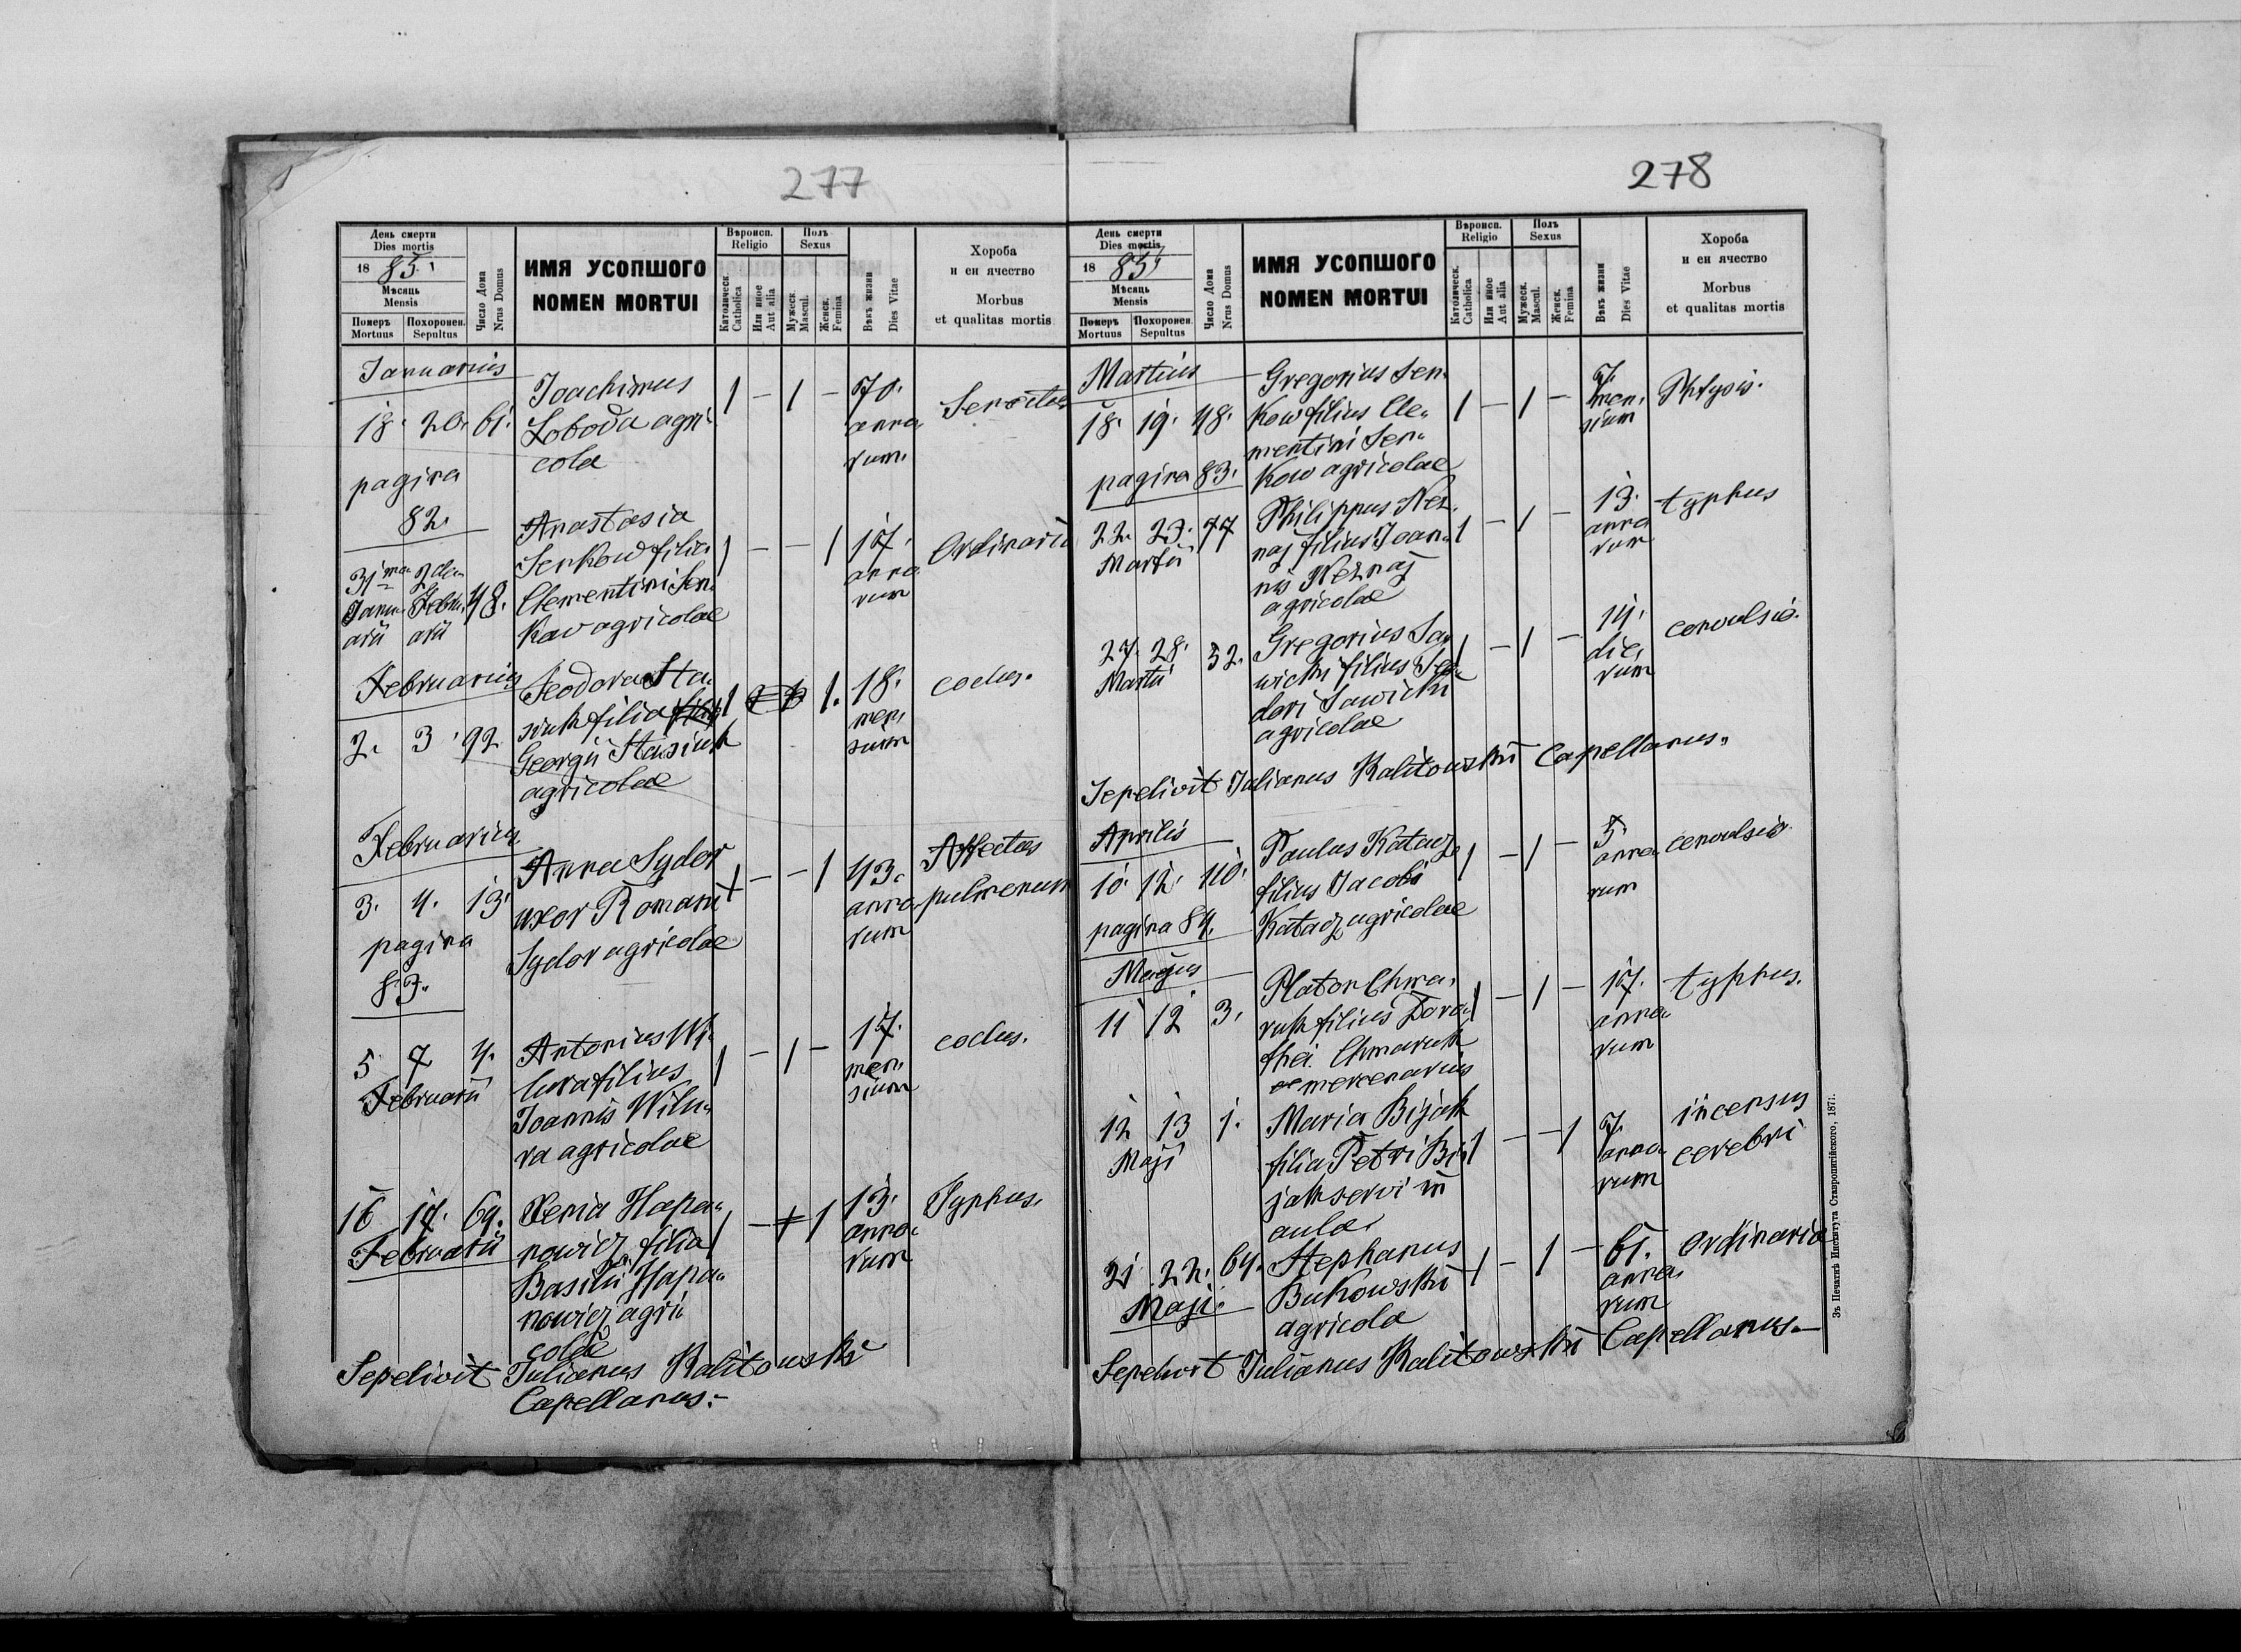 277
День смерти
Dies mortis
1885.
Мѣсяць
Mensis
Померъ
Mortuus
Похоронен.
Sepultus
Число Дома
Nrus Domus
ИМЯ УСОПШОГО
NOMEN MORTUI
Вѣроисп.
Religio
Католическ.
Catholica
Или иное
Aut alia
Полъ
Sexus
Мужеск.
Mascul.
Женск.
Femina
Вѣкъ жизни
Dies Vitae
Хороба
и еи ячество
Morbus
et qualitas mortis
Januarius
18. 20. 61.
Joachimus
Łoboda agri-
cola
1 – 1 –
70.
anno
rum.
Senectus
pagina
82.
31ma 2da
Janu- Febru- 48.
arii arii
Anastasia
Senkow filia
Clementini Sen-
kow agricolae
1 – – 1
17.
anno
rum
Ordinaria
Februarius
2. 3. 92
Teodora Sta-
siuk filia
Georgii Stasiuk
agricolae
1 1.
18.
men-
sium
Februarius
3. 4. 13.
Anna Sydor
uxor Romani
Sydor agricolae
1 – – 1
43.
anno
rum
Affectus
pulmonum
pagina
83.
5 7 4.
Februarii
Antonius Wi-
lura filius
Joannis Wilu-
ra agricolae
1 – 1 –
17.
men-
sium
16 17. 69.
Februarii
Xenia Hapa-
nowicz filia
Basilii Hapa-
nowicz agri-
colae
1 – 1
13.
anno-
rum
Typhus.
Sepelivit Julianus Kalitowski
Capellanus.-
278
День смерти
Dies mortis
1885
Мѣсяць
Mensis
Померъ
Mortuus
Похоронен.
Sepultus
Число Дома
Nrus Domus
ИМЯ УСОПШОГО
NOMEN MORTUI
Вѣроисп.
Religio
Католическ.
Catholica
Или иное
Aut alia
Полъ
Sexus
Мужеск.
Mascul.
Женск.
Femina
Вѣкъ жизни
Dies Vitae
Хороба
и еи ячество
Morbus
et qualitas mortis
Martius
18. 19. 48.
Gregorius Sen-
kow filius Cle-
mentini Sen-
kow agricolae
1 – 1 –
7.
men-
sium
Phtysis.
pagina 83.
22. 23. 77
Martii
Philippus Nez-
naj filius Joan-
nis Neznaj
agricolae
1 – 1 –
13.
anno
rum
typhus
27. 28. 32.
Martii
Gregorius Sa-
wicki filius Teo-
dori Sawicki
agricolae
1 – 1 –
14.
die-
rum
convulsio.
Sepelivit Julianus Kalitowski Capellanus.
Aprilis
10. 12. 110.
Paulus Katacz
filius Jacobi
Katacz agricolae
1 – 1 –
5
anno
rum
convulsio
pagina 84.
Majus
11 12 3.
Platon Chma-
ruk filius Doro-
thei Chmaruk
mercenarius
1 – 1 –
17.
anno
rum
typhus.
12 13 1.
Maji
Maria Bijak
filia Petri Bi-
jak servi in
aula
1 – – 1
7.
anno
rum
incensus
cerebri
21 22. 64.
Maji.
Stephanus
Bukowski
agricola
1 – 1 –
61.
anno
rum
Ordinaria
Sepelivit Julianus Kalitowski Capellanus.-
Зъ Печатнѣ Института Ставропигійского, 187.